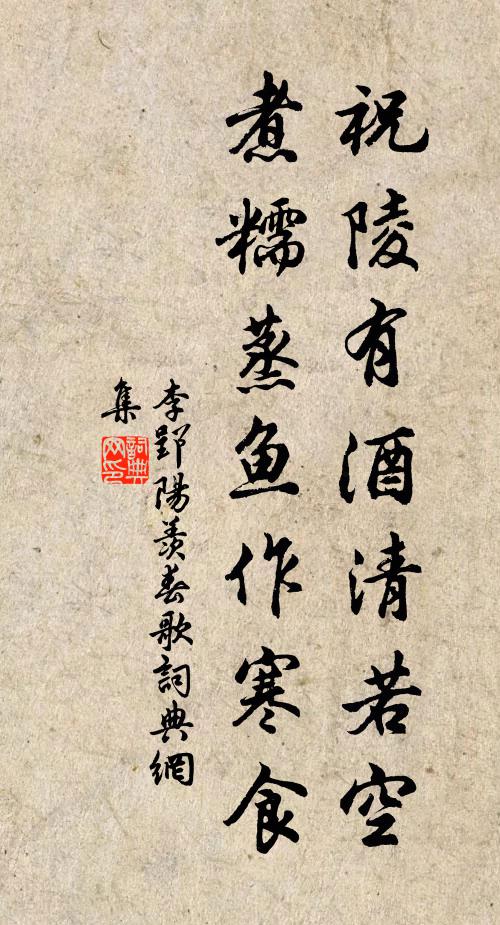 祝陵有酒清若空
煮糯蒸鱼作寒食
李郢陽羨春歌詞典網
集
詞典
网印